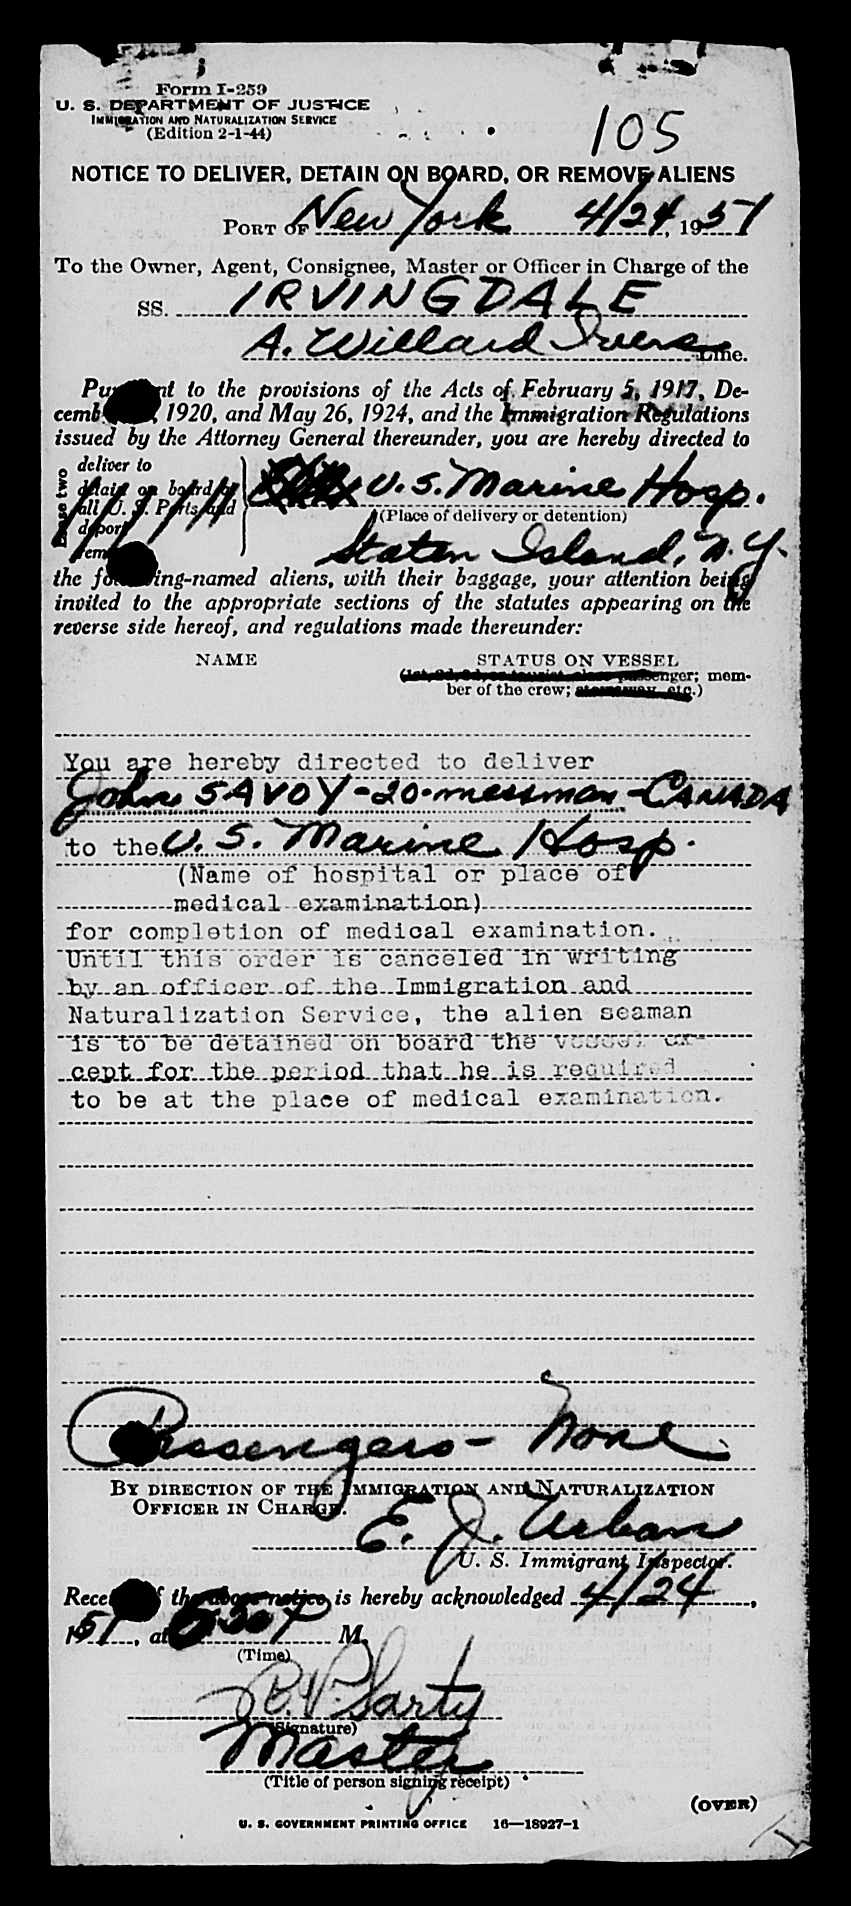 Form I-259
U. S. DEPARTMENT OF JUSTICE
IMMIGRATION AND NATURALIZATION SERVICE
(Edition 2-1-44)
105
NOTICE TO DELIVER, DETAIN ON BOARD, OR REMOVE ALIENS
PORT OF New York 4/24, 1951
To the Owner, Agent, Consignee, Master or Officer in Charge of the
SS. IRVINGDALE
A. Willard Ivers Line.
Pursuant to the provisions of the Acts of February 5, 1917, De-
cember , 1920, and May 26, 1924, and the Immigration Regulations
issued by the Attorney General thereunder, you are hereby directed to
deliver to
detain on board at
all U. S. Ports and
deport
remove
U.S. Marine Hosp.
(Place of delivery or detention)
Staten Island, N.Y.
the following-named aliens, with their baggage, your attention being
invited to the appropriate sections of the statutes appearing on the
reverse side hereof, and regulations made thereunder:
NAME STATUS ON VESSEL
(1st, 2d, 3d, or tourist class passenger; mem-
ber of the crew; stowaway, etc.)
You are hereby directed to deliver
John SAVOY-20-messman-CANADA
to the U.S. Marine Hosp.
(Name of hospital or place of
medical examination)
for completion of medical examination.
Until this order is canceled in writing
by an officer of the Immigration and
Naturalization Service, the alien seaman
is to be detained on board the vessel ex-
cept for the period that he is required
to be at the place of medical examination.
Passengers - None
BY DIRECTION OF THE IMMIGRATION AND NATURALIZATION
OFFICER IN CHARGE.
E. J. Urban
U. S. Immigrant Inspector.
Receipt of the above notice is hereby acknowledged 4/24,
1951, at P M.
(Time)
(Signature)
Master
(Title of person signing receipt)
(OVER)
U. S. GOVERNMENT PRINTING OFFICE 16—18927-1